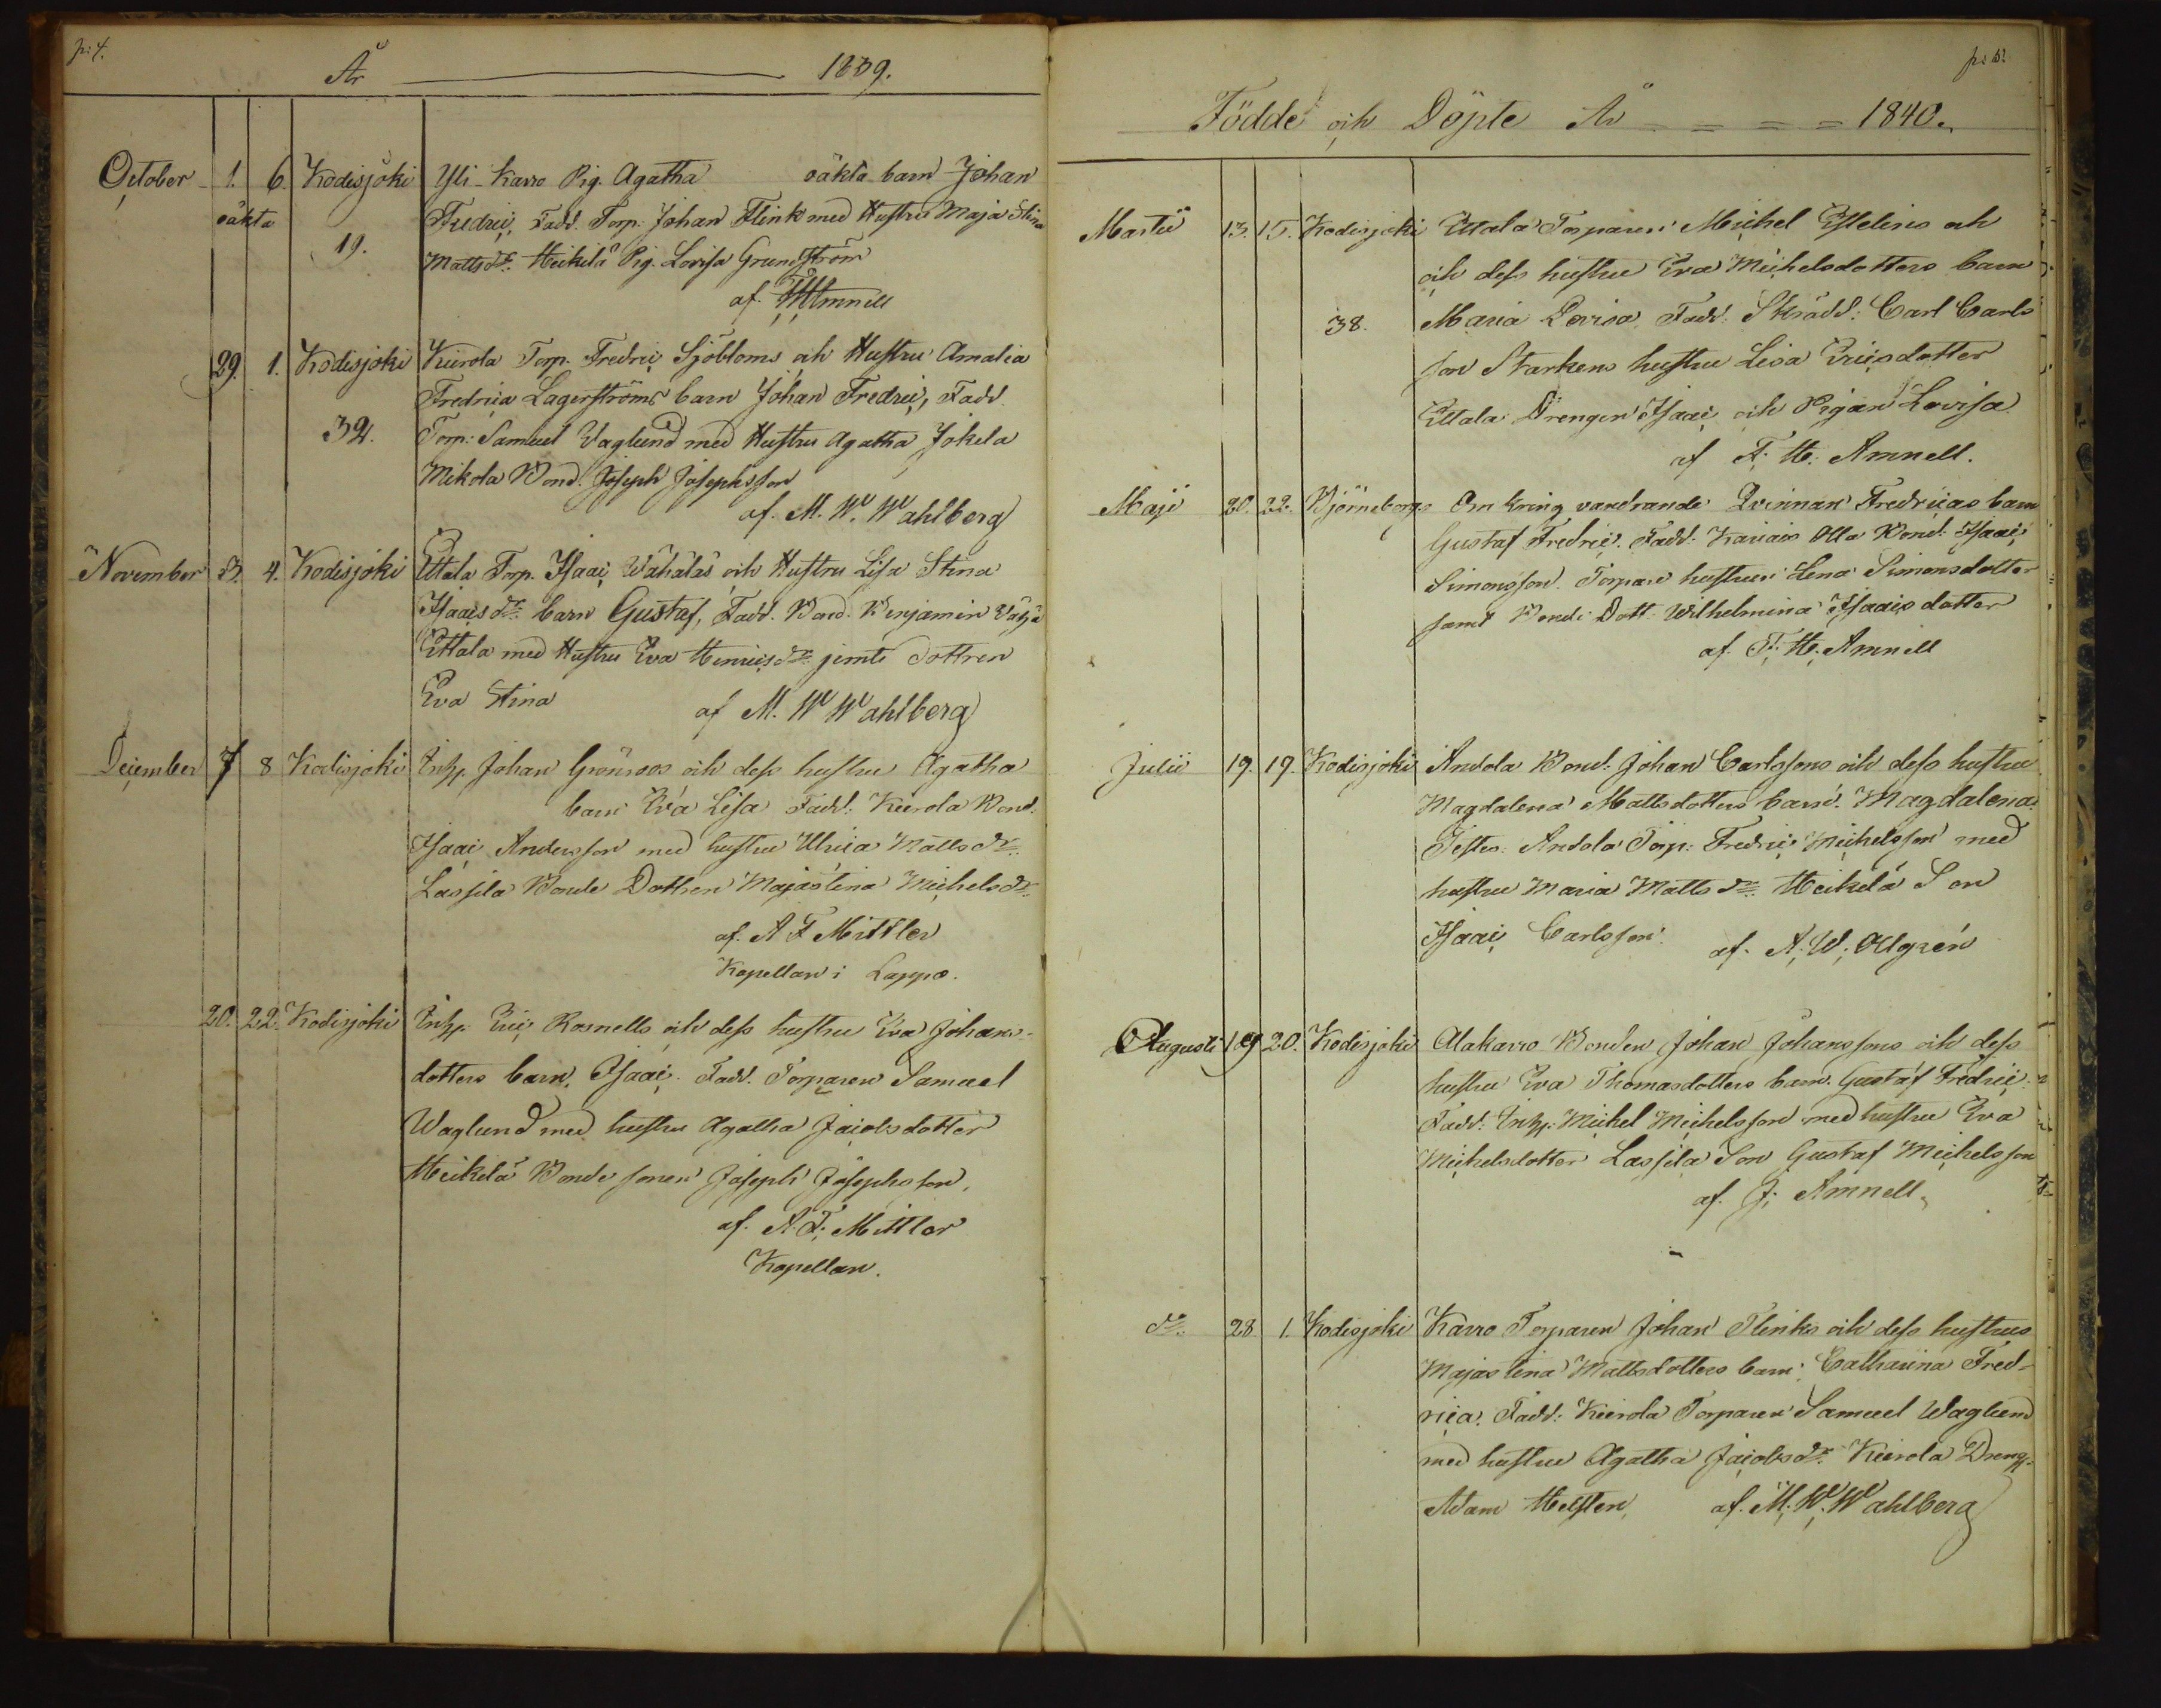 p: 4.
År 1839.
October 1. 6. Kodisjoki Yli-Karro Pig. Agatha oäkta barn Johan
oäkta Fredric, Fadd. Torp. Johan Flink med Hustru Maja Stina
19. Matts dr. Heikilä Pig. Lovisa Grundström
af Amnell
29. 1. Kodisjoki Kierola Torp. Fredric Sjöbloms och Hustru Amalia
Fredrica Lagerströms barn Johan Fredric, Fadd.
32. Torp: Samuel Waglund med Hustru Agatha Jokela
Mikola Bond. Joseph Josephsson
af. M. W. Wahlberg
November 3. 4. Kodisjoki Ettala Torp. Isaac Wähäläs och Hustru Lisa Stina
Isaacs dr. barn Gustaf, Fadd. Bond. Benjamin
Ettala med Hustru Eva Henrics dr. jemte dottren
Eva Stina af M. W Wahlberg
December 7 8 Kodisjoki Inhy. Johan Grönroos och dess hustru Agatha
barn Eva Lisa Fadd: Kierola Bond.
Isaac Andersson med hustru Ulrica Matts dr.
Lassila Bonde Dottren Majastina Michels dr.
af. A F Mittler
Kapellan i Lappo.
20. 22. Kodisjoki Inhy. Eric Rosnells och dess hustru Eva Johans-
dotters barn, Isaac. Fadd. Torparen Samuel
Waglund med hustru Agatha Jacobsdotter
Heikelä Bonde sonen Joseph Josephsson,
af. A. F. Mittler
Kapellan.
p: 5.
Födde och Döpte År = = = = 1840.
Martii 13. 15. Kodisjoki Ettala Torparen Michel Estelins och
och dess hustru Eva Michelsdotters barn
38. Maria Lovisa, Fadd: Skrädd: Carl Carls
son Starkens hustru Lisa Ericsdotter
Ettala Drengen Isaac och Pigan Lovisa
af F. H. Amnell.
Maji 20. 22. Björneborgs Om kring vandrande Qvinnan Fredricas barn
Gustaf Fredric. Fadd: Kariais Olla Bond: Isaac
Simonsson. Torpare hustrun Lena Simonsdotter
samt Bonde Dott. Wilhelmina Isaacsdotter
af. F. H. Amnell
Julii 19. 19. Kodisjoki Andola Bond: Johan Carlssons och dess hustru
Magdalena Mattsdotters barn. Magdalena.
Testes: Andola Torp: Fredric Michelsson med
hustru Maria Matts dr. Heikelä Son
Isaac Carlsson. af. A. W. Ollgrén
Augusti 19 20. Kodisjoki Alakarro Bonden Johan Johanssons och dess
hustru Eva Thomasdotters barn. Gustaf Fredric
Fadd: Inhy. Michel Michelsson med hustru Eva
Michelsdotter Lassila Son Gustaf Michelsson
af. F. Amnell
do. 28 1. Kodisjoki Karro Torparen Johan Flinks och dess hustrus
Majastina Mattsdotters barn: Catharina Fred-
rica. Fadd: Kierola Torparen Samuel Waglund
med hustru Agatha Jacobs dr. Kierola Dreng.
Adam Hellsten, af. M. W. Wahlberg